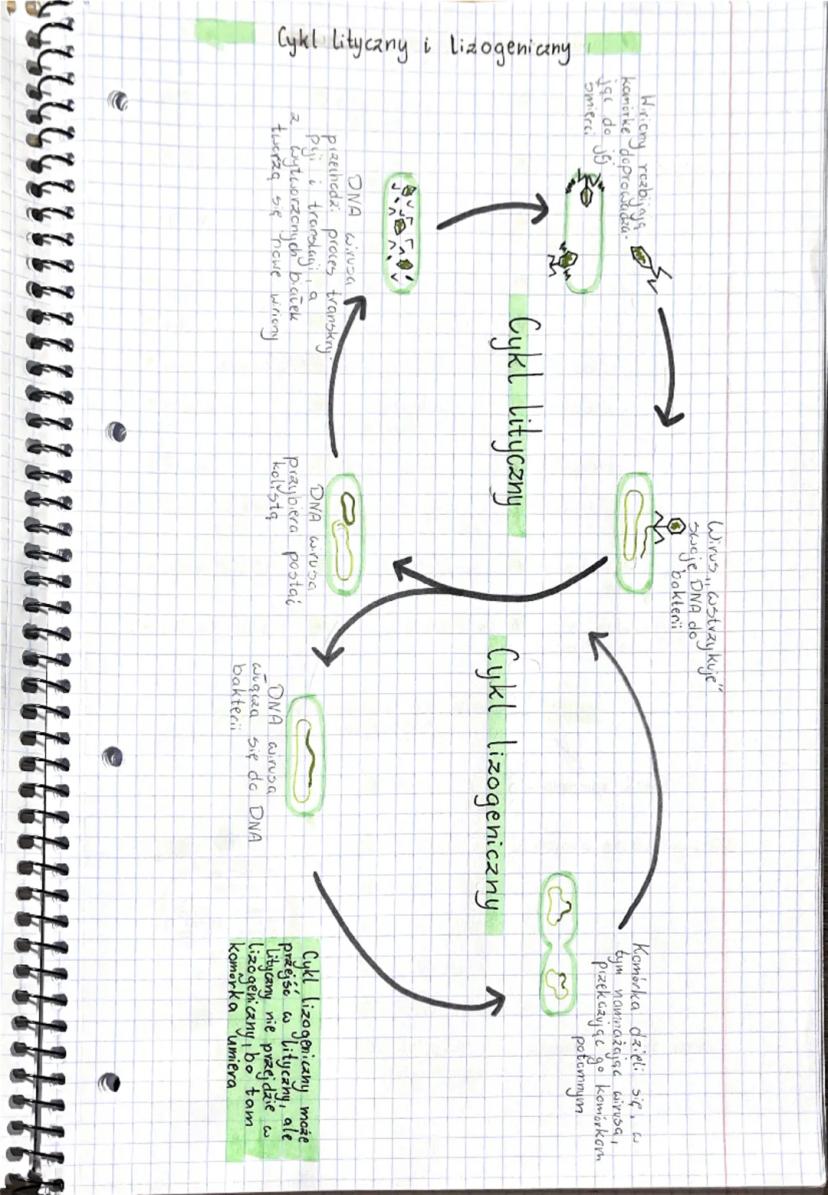 Cykl lityczny i lizogeniczny
Wiriony rozbijają
komórkę doprowadza-
jąc do jej
śmierci
Cykl lityczny
Wirus „wstrzykuje"
swoje DNA do
bakterii
DNA wirusa
przechodzi proces transkry-
pcji i translacji, a
z wytworzonych białek
tworzą się nowe wiriony
DNA wirusa
przybiera postać
kolistą
Cykl lizogeniczny
DNA wirusa
włącza się do DNA
bakterii
Komórka dzieli się, w
tym namnażając wirusa,
przekazując go komórkom
potomnym
Cykl lizogeniczny może
przejść w lityczny, ale
lityczny nie przejdzie w
lizogeniczny, bo tam
komórka umiera